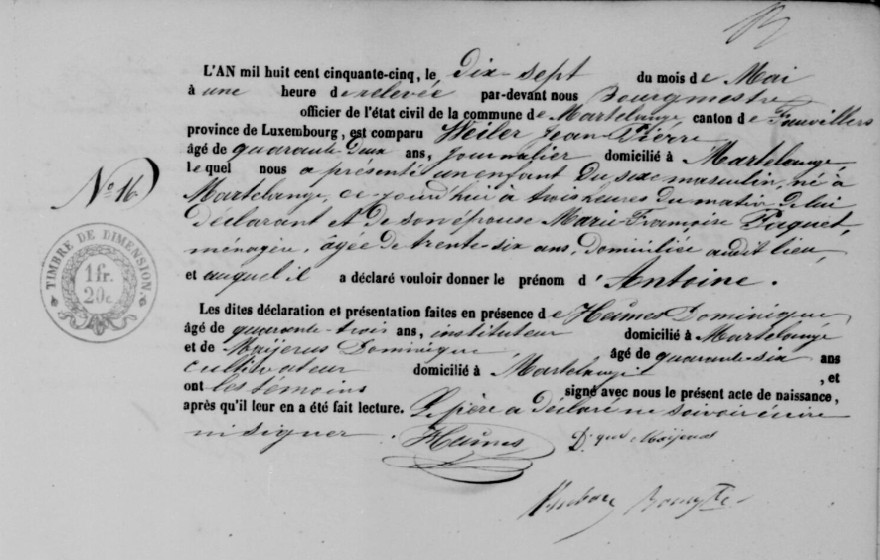 L'AN mil huit cent cinquante-cinq, le dix-sept du mois de Mai
à une heure de relevée par-devant nous Bourgmestre
officier de l'état civil de la commune de Martelange canton de Fauvillers
province de Luxembourg, est comparu Weiler Jean-Pierre
âgé de quarante-deux ans, journalier domicilié à Martelange,
lequel nous a présenté un enfant du sexe masculin, né à
Martelange, ce-jourd'hui à trois heures du matin de lui
déclarant et de son épouse Marie-Françoise Paquet,
ménagère, agée de trente-six ans, domiciliée audit lieu,
et auquel il a déclaré vouloir donner le prénom d'Antoine.
No 16
TIMBRE DE DIMENSION.
1 fr.
20c
Les dites déclaration et présentation faites en présence de Heimes Dominique,
âgé de quarante-trois ans, instituteur domicilié à Martelange
et de Maÿerus Dominique, âgé de quarante-six ans
cultivateur domicilié à Martelange, et
ont les témoins signé avec nous le présent acte de naissance,
après qu'il leur en a été fait lecture. Le père a déclaré ne savoir écrire
ni signer.
Heimes Dque Maÿerus